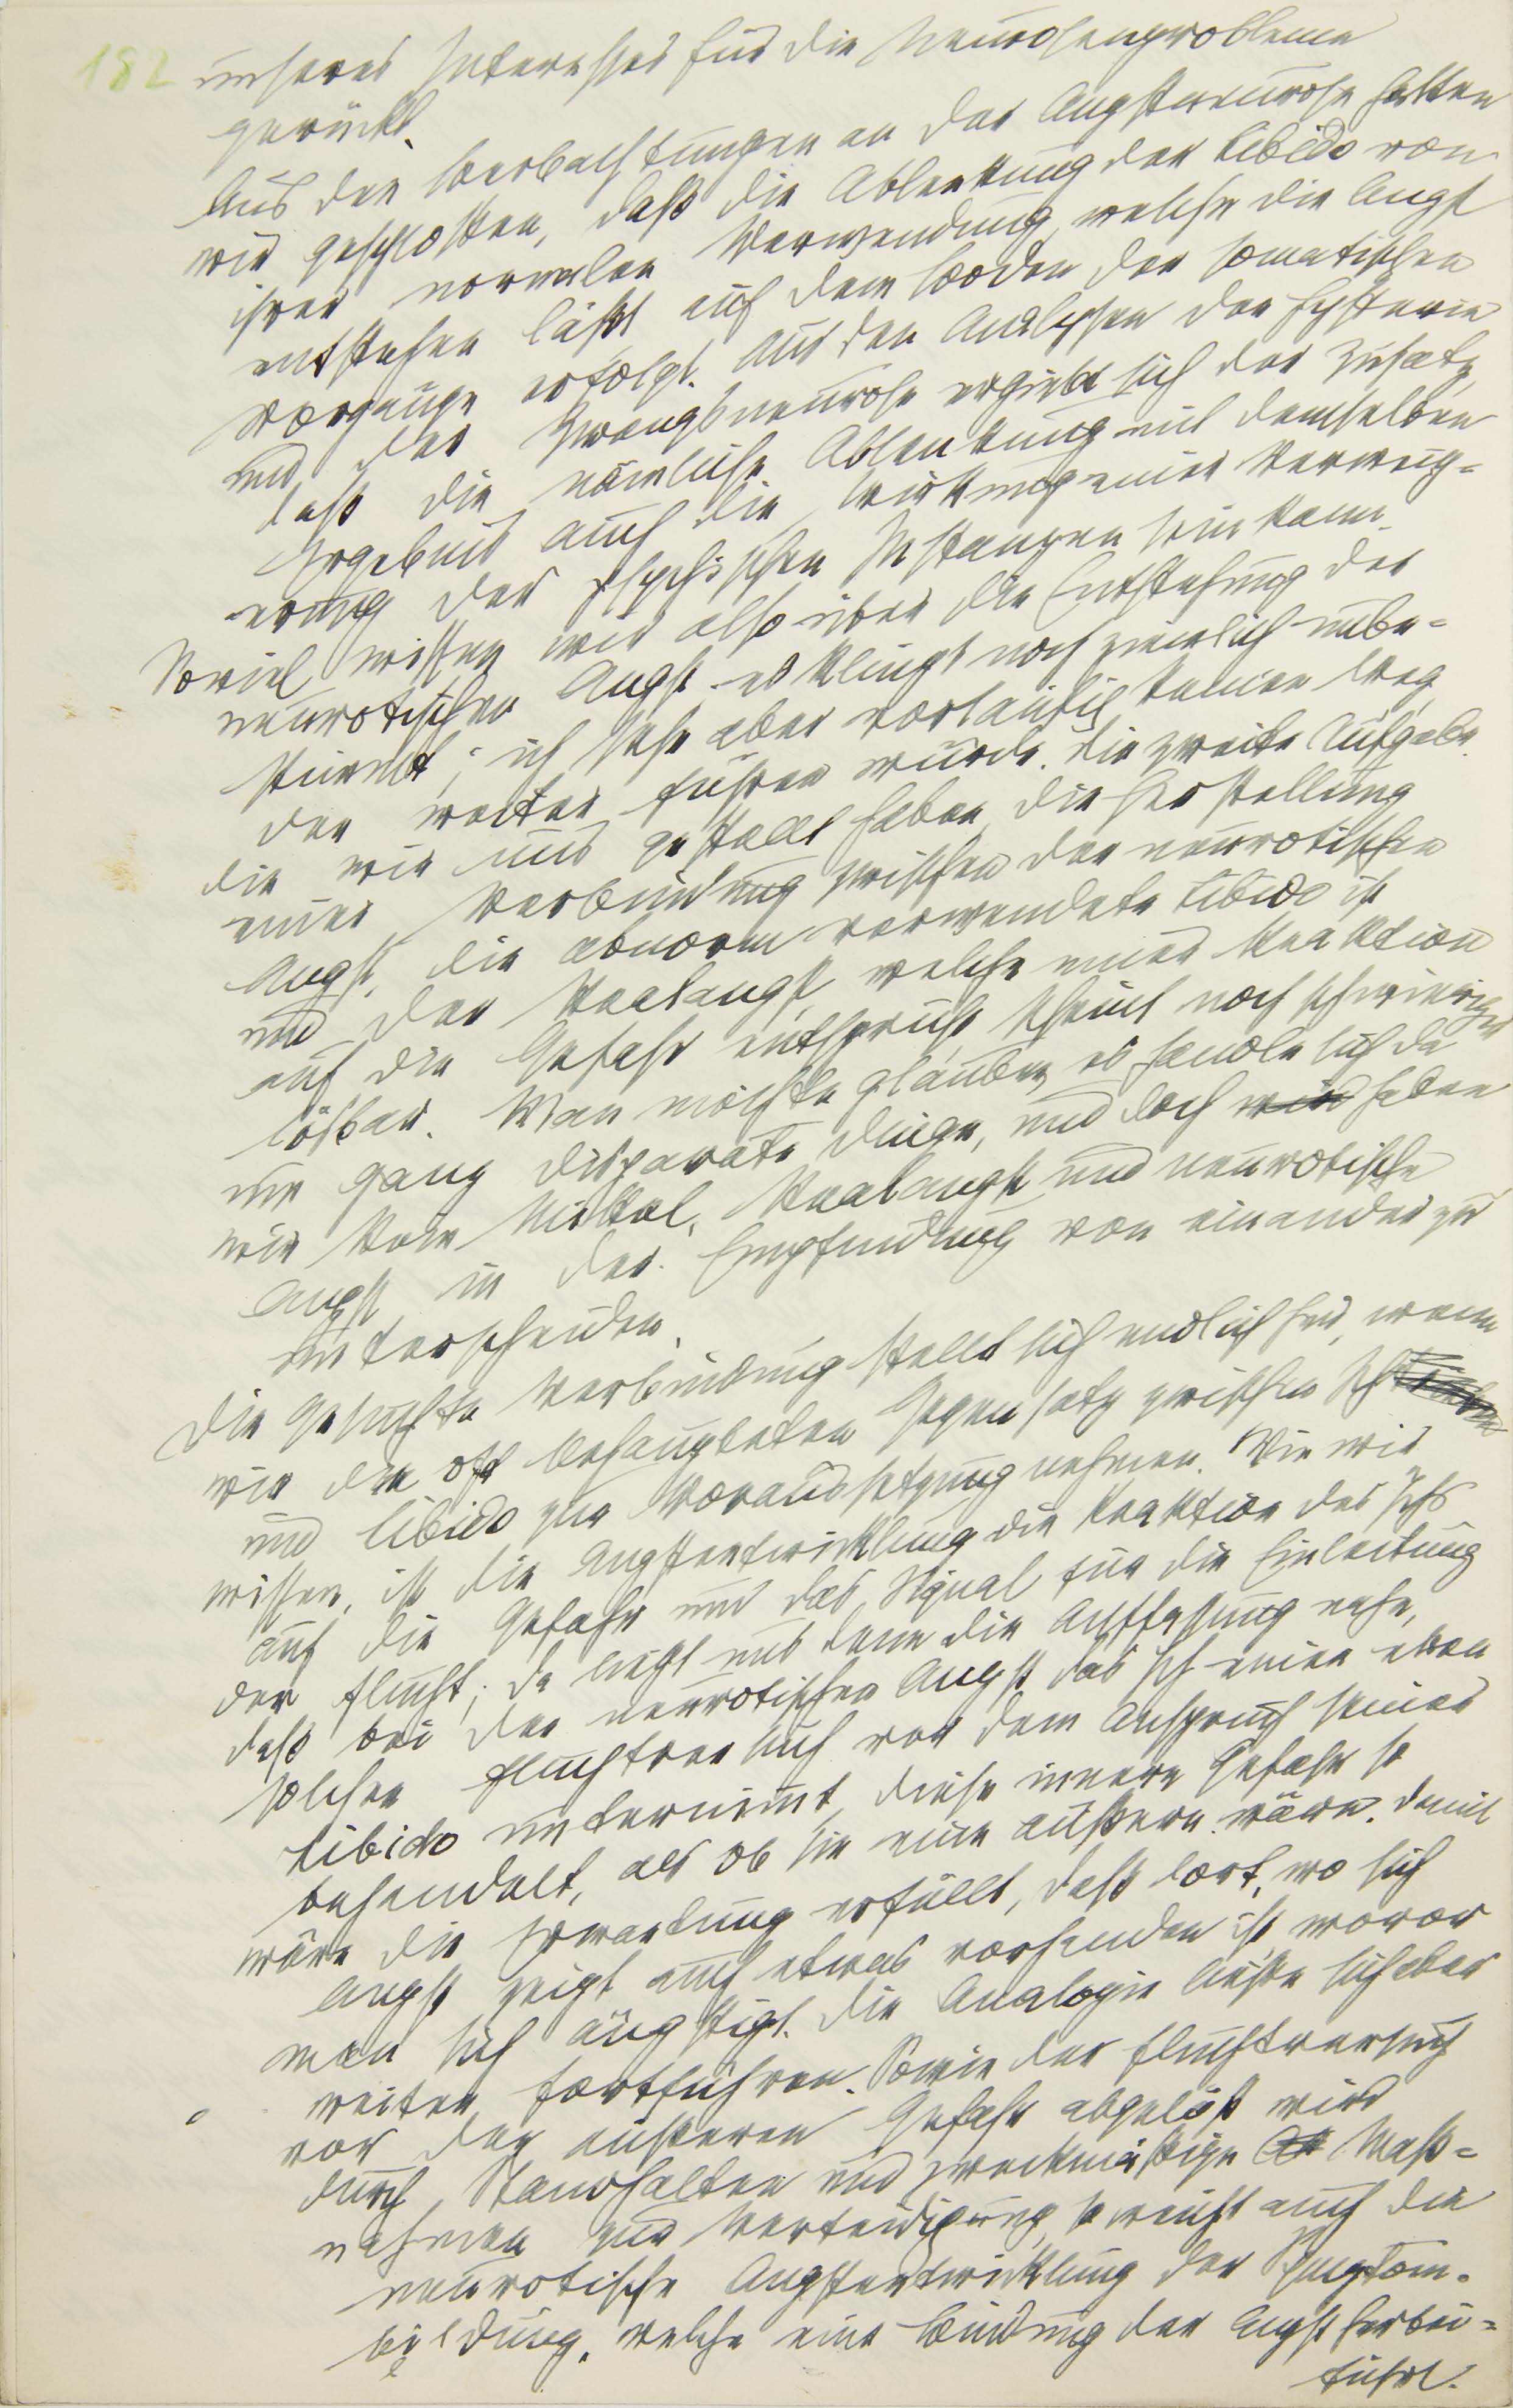 182 unseres Interesses für die Neurosenprobleme
gerückt.
Aus den Beobachtungen an der Angstneurose hatten
wir geschlossen, daß die Ablenkung der Libido von
ihrer normalen Verwendung, welche die Angst
entstehen läßt, auf dem Boden der somatischen
Vorgänge erfolgt. Aus den Analysen der Hysterie
und der Zwangsneurose ergiebt sich der Zusatz,
daß die nämliche Ablenkung mit demselben
Ergebnis auch die Wirkung einer Verweig-
erung der psychischen Instanzen sein kann.
Soviel wissen wir also über die Entstehung der
neurotischen Angst. es klingt noch ziemlich unbe-
stimmt; ich sehe aber vorläufig keinen Weg,
der weiter führen würde. Die zweite Aufgabe
die wir uns gestellt haben, die Herstellung
einer Verbindung zwischen der neurotischen
Angst, die abnorm verwendete Libido ist
und der Realangst, welche einer Reaktion
auf die Gefahr entspricht, scheint noch schwieriger
lösbar. Man möchte glauben, es handle sich da
um ganz disparate Dinge, und doch haben
wir kein Mittel, Realangst und neurotische
Angst in der Empfindung von einander zu
unterscheiden.
Die gesuchte Verbindung stellt sich endlich her, wenn
wir den oft behaupteten Gegensatz zwischen Ich
und Libido zur Voraussetzung nehmen. Wie wir
wissen, ist die Angstentwicklung die Reaktion des Ichs
auf die Gefahr und das Signal für die Einleitung
der Flucht; da liegt uns denn die Auffassung nahe,
daß bei der neurotischen Angst das Ich einen eben
solchen Fluchtversuch vor dem Anspruch seiner
Libido unternimmt, diese innere Gefahr so
behandelt, als ob sie eine äußere wäre. Damit
wäre die Erwartung erfüllt, daß dort, wo sich
Angst zeigt auch etwas vorhanden ist wovor
man sich ängstigt. Die Analogie ließe sich aber
weiter fortführen. Sowie der Fluchtversuch
vor der äußeren Gefahr abgelöst wird
durch Standhalten und zweckmäßige Maß-
nahmen zur Verteidigung, so weicht auch die
neurotische Angstentwicklung der Symptom-
bildung, welche eine Bindung der Angst herbei-
führt.